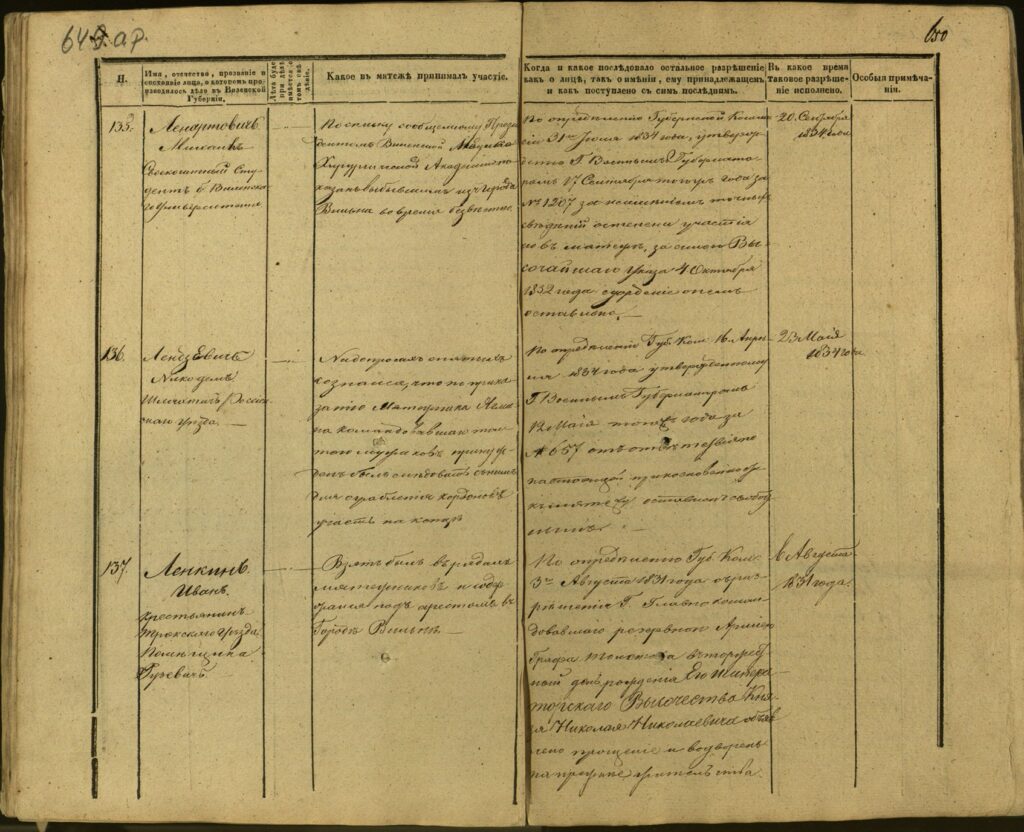 649. ар.
650
Н.
Имя, отечество, прозваніе и
состояніе лица, о которомъ про-
изводилось дѣло въ Виленской
Губерніи.
Какое въ мятежѣ принималъ участіе.
Когда и какое послѣдовало остальное разрѣшеніе
какъ о лицѣ, такъ о имѣніи, ему принадлежащемъ
и какъ поступлено съ симъ послѣднимъ.
Въ какое время
таковое разрѣше-
ніе исполнено.
Особыя примѣча-
нія.
135.
Ленартовичъ
Михаилъ
Своекоштный Сту-
дентъ б. Виленска-
го Университета
По списку сообщенному Прези-
дентомъ Виленской Медико
Хирургической Академіи по-
казанъ выбывшимъ изъ Города
Вильна во время безвѣстно
По опредѣленію Губернской Комми-
сіи 31го Іюля 1834 года, утверж-
денно Г. Военнымъ Губернато-
ромъ 17 Сентября того года за
№ 1207 за неимѣніемъ точныхъ
свѣдѣній о степени участія
его въ мятежѣ, за силою Вы-
сочайшаго Указа 4 Октября
1832 года сужденіе о немъ
оставлено.
20 Сентября
1834 года
136.
Лендзевичъ
Никодемъ
Шляхтичъ Россіен-
скаго уѣзда.
На допросахъ снятыхъ
сознался, что по прика-
занію Мятежника
командовавшаго
принуж-
денъ былъ слѣдовать съ нимъ
для ограбленія кордоновъ
По опредѣленію Губ. Ком. 16 Апрѣ-
ля 1834 года утвержденному
Г. Военнымъ Губернаторомъ
12 Маія того года за
№ 657 отъ отвѣтственности по
настоящей прикосновенности
къ мятежу оставленъ свобод-
нымъ.
23 Маія
1834 года
137.
Ленкинъ
Иванъ
Крестьянинъ
Трокскаго уѣзда
Помѣщика
Гузевичъ.
Взятъ былъ въ рядахъ
мятежниковъ и содер-
жался подъ арестомъ въ
Городѣ Вильнѣ
По опредѣленію Губ. Ком.
3го Августа 1831 года съ раз-
рѣшенія Г. Главнокоман-
довавшаго резервною Арміею
Графа Толстова въ торжест-
ный день рожденія Его Импера-
торскаго Высочества Кня-
зя Николая Николаевича объяв-
лено прощеніе и водворенъ
на прежнее жительство.
6 Августа
1831 года.